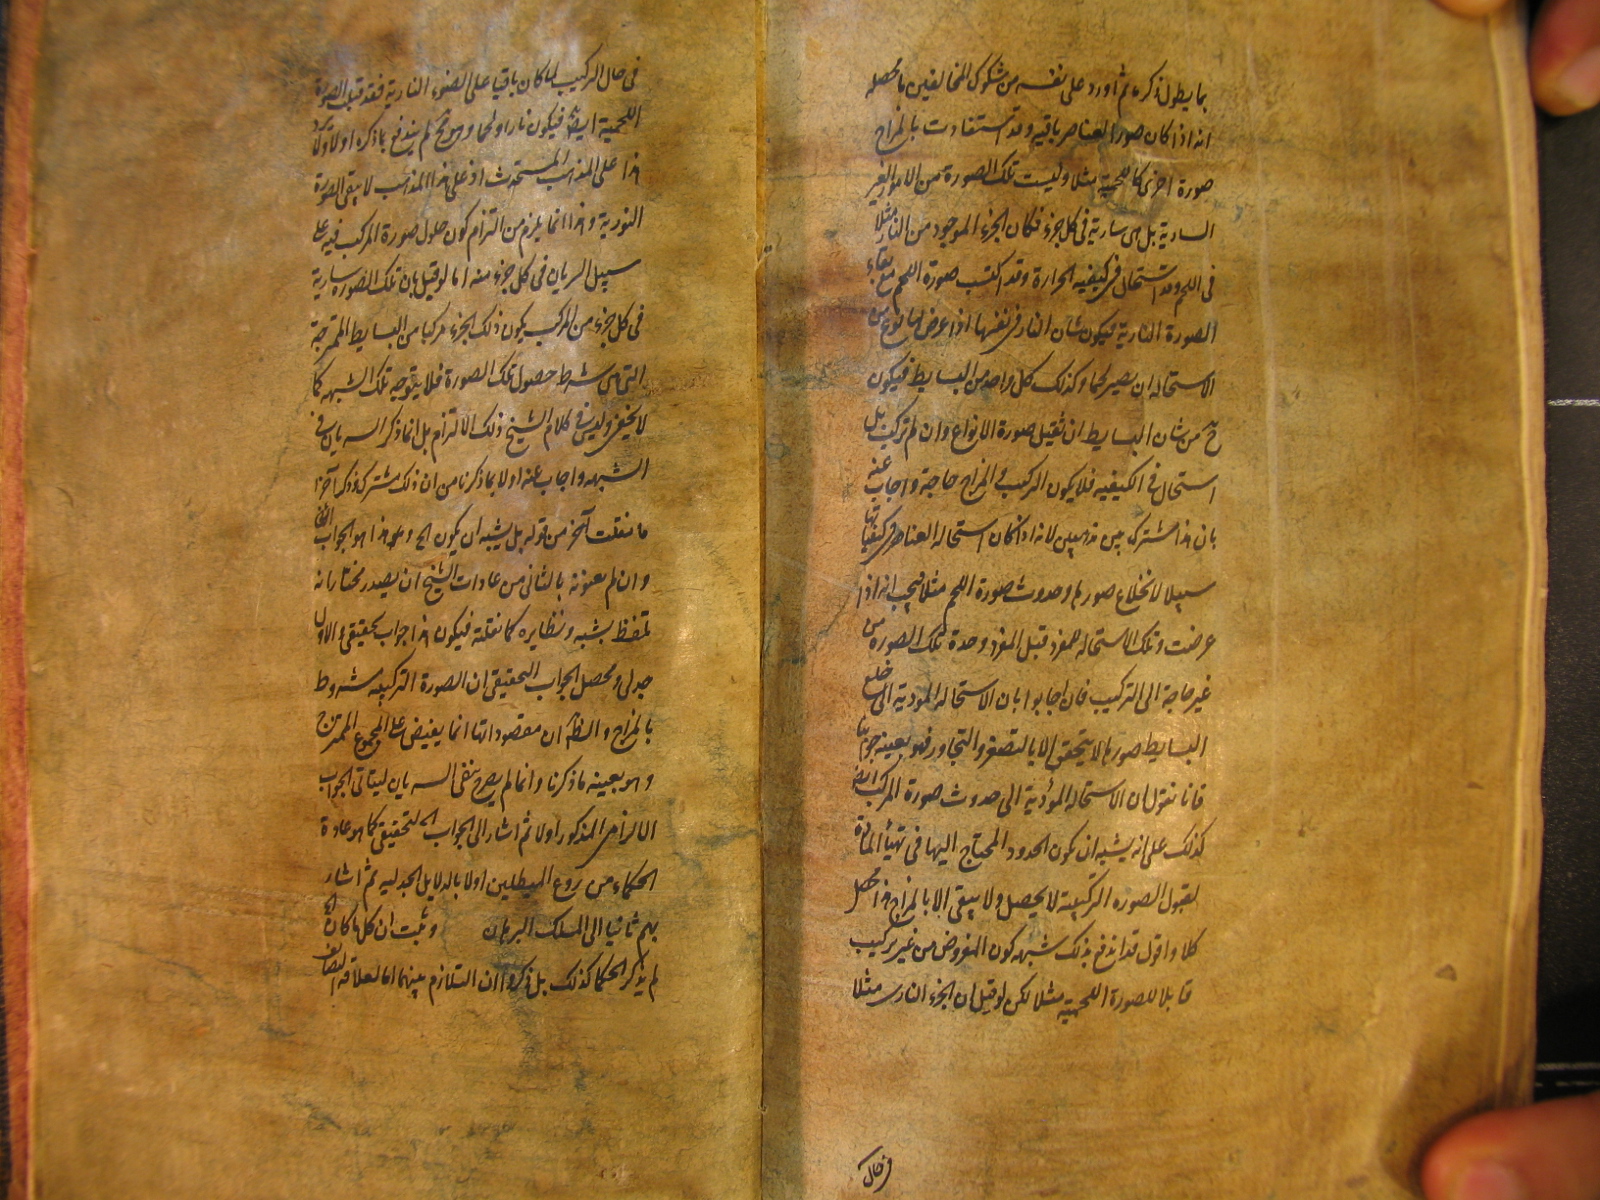 بما يطول ذكره ثم أورد على نفسه من شكوك المخالفين ما محصله
انه اذا كان صور العناصر باقيه وقد استفادت بالمزاج
صورة اخرى كاللحمية مثلا وليست تلك الصورة من الامور الغير
السارية بل هى سارية فى كل جزء فكان الجزء الموجود من النار مثلا
فى اللحم وقد استحال فى كيفيه الحرارة وقد اكتسب صورة اللحم مع بقاء
الصورة النارية فيكون شان النار فى نفسها اذا عرض لها نوع من
الاستحاله ان يصير لحما وكذلك كل واحد من البسايط فيكون
ح من شان البسايط ان تقبل صورة الانواع وان لم تركب بل
استحال فى الكيفيه فلا يكون التركيب و المزاج حاجة واجاب عنه
بان هذا مشترك بين مذهبين لانه اذا كان استحاله العناصر فى كيفياتها
سبيلا لانخلاع صورها وحدوث صورة اللحم مثلا فيجب انه اذا
عرضت وتلك الاستحاله لمفرد قبل المفرد وحدة تلك الصوره من
غير حاجة الى التركيب فان اجابوا بان الاستحاله المودية الى خلع
البسايط صورها لا يتحقق الا بالتصغر والتجاور فهو بعينه جوابنا
فانا نقول ان الاستحاله المؤدية الى حدوث صورة المركب ايضا
كذلك على انه يشبه ان يكون الحدود المحتاج اليها فى تهيأ المادة
لقبول الصوره التركيبية لا يحصل ولا يبقى الا بالمزاج هذا محصل
كلامه واقول قد اندفع بذلك شبهه كون المفروض من غير تركيب
قابلا للصورة اللحمية مثلا لكن لو قيل ان الجزء النارى مثلا
فى حال
فى حال التركيب لما كان باقيا على الضوء النارية فقد قبل الصورة
اللحمية ايضا فيكون نارا ولحما وهو ح لم يندفع بما ذكره اولا ولا يرد
هذا على المذهب المستحدث اذ على هذا المذهب لا يبقى الصورة
النورية وهذا انما يلزم من التزام كون حلول صورة المركب فيه على
سبيل السريان فى كل جزء منه اما لو قيل بان تلك الصوره سارية
فى كل جزء من المركب يكون ذلك الجزء مركبا من البسايط الممتزجة
التى هى شرط حصول تلك الصورة فلا يتوجه تلك الشبهه كما
لا يخفى وليس فى كلام الشيخ ذلك الالتزام بل انما ذكر السريان فى
الشبهه واجاب عنه اولا بما ذكرنا من ان ذلك مشترك وذكر آخرا
ما نقلت آخر من قوله بل يشبه ان يكون الخ وهو هذا هو الجواب
وان لم يعنونه بالثانى من عادات الشيخ ان يصدر مختاراته
بلفظ يشبه ونظايره كما نقلته فيكون هذا جواب تحقيقى والاول
جدلى ومحصل الجواب التحقيقى ان الصورة التركيبيه مشروط
بالمزاج والظ ان مقصود انها انما يفيض على المجموع الممتزج
وهو بعينه ما ذكرنا وانما لم يصرح بنفى السريان ليتاتى الجواب
الالزامى المذكور اولا ثم اشار الى الجواب التحقيقى كما هو عادة
الحكماء من روع المبطلين اولا بالدلايل الجدليه ثم اشار
بهم ثانيا الى المسلك البرهان وثبت ان كل ما كان
لم يذكر الحكما كذلك بل ذكروا ان التلازم بينهما اما لعلاقه